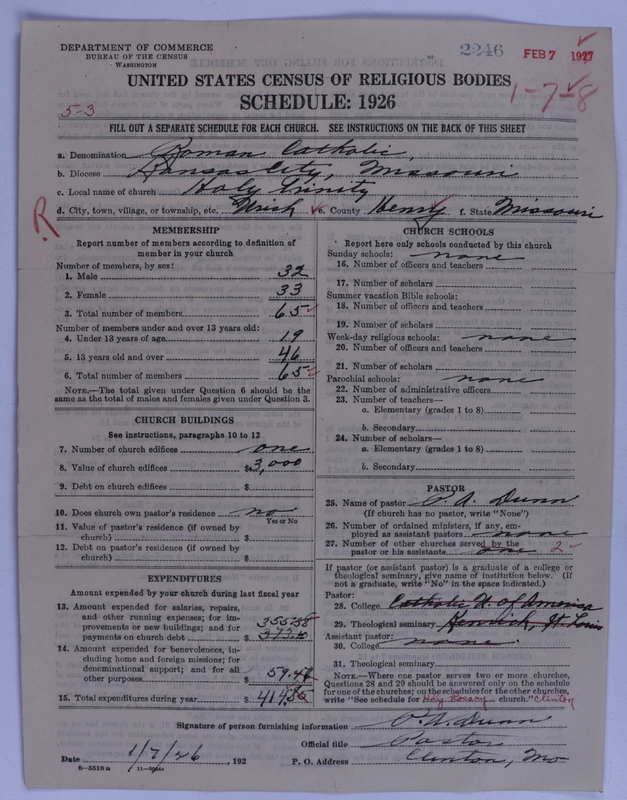 DEPARTMENT OF COMMERCE
BUREAU OF THE CENSUS
WASHINGTON
2246 FEB 7 1927
UNITED STATES CENSUS OF RELIGIOUS BODIES
SCHEDULE: 1926
5-3
1-7-8
FILL OUT A SEPARATE SCHEDULE FOR EACH CHURCH. SEE INSTRUCTIONS ON THE BACK OF THIS SHEET
a. Denomination Roman Catholic
b. Diocese Kansas City, Missouri
c. Local name of church Holy Trinity
d. City, town, village, or township, etc. Urich e. County Henry f. State Missouri
R
MEMBERSHIP
Report number of members according to definition of
member in your church
Number of members, by sex:
1. Male 32
2. Female 33
3. Total number of members 65
Number of members under and over 13 years old:
4. Under 13 years of age 19
5. 13 years old and over 46
6. Total number of members 65
NOTE.—The total given under Question 6 should be the
same as the total of males and females given under Question 3.
CHURCH BUILDINGS
See instructions, paragraphs 10 to 12
7. Number of church edifices one
8. Value of church edifices $3,000
9. Debt on church edifices $
10. Does church own pastor's residence no
Yes or No
11. Value of pastor's residence (if owned by
church) $
12. Debt on pastor's residence (if owned by
church) $
EXPENDITURES
Amount expended by your church during last fiscal year
13. Amount expended for salaries, repairs,
and other running expenses; for im-
provements or new buildings; and for
payments on church debt $
14. Amount expended for benevolences, in-
cluding home and foreign missions; for
denominational support; and for all
other purposes $
15. Total expenditures during year $
CHURCH SCHOOLS
Report here only schools conducted by this church
Sunday schools: none
16. Number of officers and teachers
17. Number of scholars
Summer vacation Bible schools:
18. Number of officers and teachers
19. Number of scholars
Week-day religious schools: none
20. Number of officers and teachers
21. Number of scholars
Parochial schools: none
22. Number of administrative officers
23. Number of teachers—
a. Elementary (grades 1 to 8)
b. Secondary
24. Number of scholars—
a. Elementary (grades 1 to 8)
b. Secondary
PASTOR
25. Name of pastor Dunn
(If church has no pastor, write "None")
26. Number of ordained ministers, if any, em-
ployed as assistant pastors none
27. Number of other churches served by the
pastor or his assistants one 2
If pastor (or assistant pastor) is a graduate of a college or
theological seminary, give name of institution below. (If
not a graduate, write "No" in the space indicated.)
Pastor:
28. College Catholic U. of America
29. Theological seminary Kenrick, St Louis
Assistant pastor:
30. College none
31. Theological seminary
NOTE.—Where one pastor serves two or more churches,
Questions 28 and 29 should be answered only on the schedule
for one of the churches; on the schedules for the other churches,
write "See schedule for Holy Rosary church." Clinton
Signature of person furnishing information Dunn
Official title Pastor
Date 1/7/26, 192 P. O. Address Clinton, Mo
8-5518a